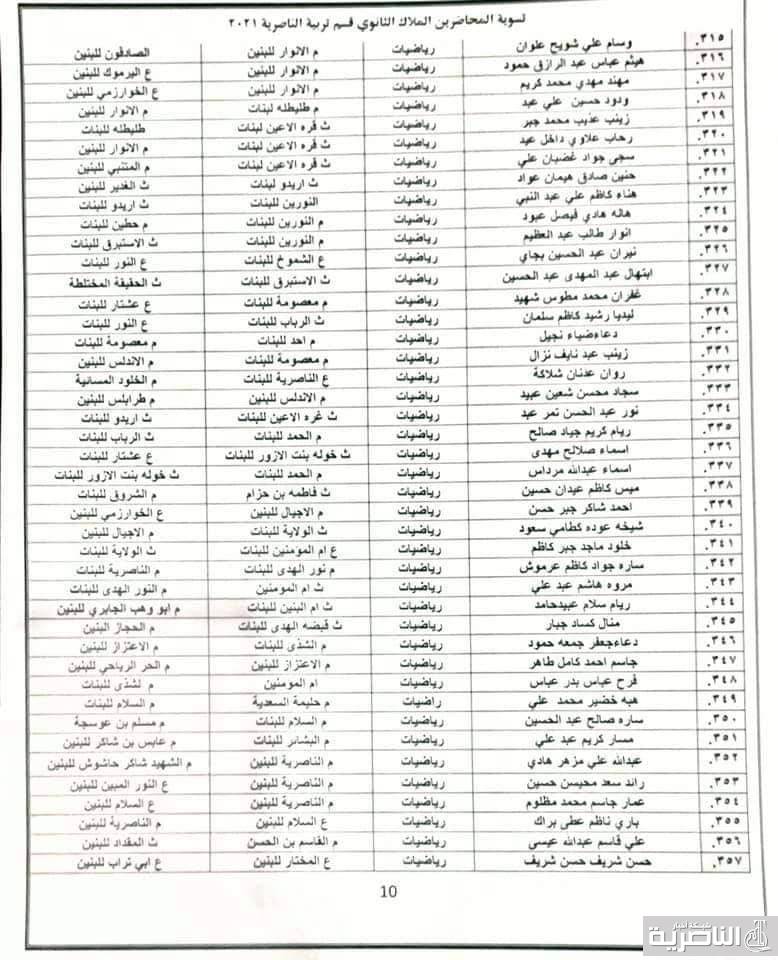 تسوية المحاضرين الملاك الثانوي قسم تربية الناصرية ٢٠٢١
٣١٥. وسام علي شويح علوان رياضيات م الانوار للبنين الصادقون للبنين
٣١٦. هيثم عباس عبد الرازق حمود رياضيات م الانوار للبنين ع اليرموك للبنين
٣١٧. مهند مهدي محمد كريم رياضيات م الانوار للبنين ع الخوارزمي للبنين
٣١٨. ودود حسين علي عبد رياضيات م طليطله لبنات م الانوار للبنين
٣١٩. زينب عذيب محمد جبر رياضيات ث قره الاعين لبنات طليطله للبنات
٣٢٠. رحاب علاوي داخل عيد رياضيات ث قره الاعين لبنات م الانوار للبنين
٣٢١. سجى جواد غضبان علي رياضيات ث قره الاعين لبنات م المتنبي للبنين
٣٢٢. حنين صادق هيمان عواد رياضيات ث اريدو لبنات ث الغدير للبنين
٣٢٣. هناء كاظم علي عبد النبي رياضيات النورين للبنات ث اريدو للبنات
٣٢٤. هاله هادي فيصل عبود رياضيات م النورين للبنات م حطين للبنات
٣٢٥. انوار طالب عبد العظيم رياضيات م النورين للبنات ث الاستبرق للبنات
٣٢٦. نيران عبد الحسين بجاي رياضيات ع الشموخ للبنات ع النور للبنات
٣٢٧. ابتهال عبد المهدى عبد الحسين رياضيات ث الاستبرق للبنات ث الحقيقة المختلطة
٣٢٨. غفران محمد مطوس شهيد رياضيات م معصومة للبنات ع عشتار للبنات
٣٢٩. ليديا رشيد كاظم سلمان رياضيات ث الرباب للبنات ع النور للبنات
٣٣٠. دعاءضياء نجيل رياضيات م احد للبنات م معصومة للبنات
٣٣١. زينب عبد نايف نزال رياضيات م معصومة للبنات م الاندلس للبنين
٣٣٢. روان عدنان شلاكة رياضيات ع الناصرية للبنات م الخلود المسائية
٣٣٣. سجاد محسن شعين عبيد رياضيات م الاندلس للبنين م طرابلس للبنين
٣٣٤. نور عبد الحسن نمر عبد رياضيات ث غره الاعين للبنات ث اريدو للبنات
٣٣٥. ريام كريم جياد صالح رياضيات م الحمد للبنات ث الرباب للبنات
٣٣٦. اسماء صلالح مهدى رياضيات ث خوله بنت الازور للبنات ع عشتار للبنات
٣٣٧. اسماء عبدالله مرداس رياضيات م الحمد للبنات ث خوله بنت الازور للبنات
٣٣٨. ميس كاظم عيدان حسين رياضيات ث فاطمه بن حزام م الشروق للبنات
٣٣٩. احمد شاكر جبر حسن رياضيات م الاجيال للبنين ع الخوارزمي للبنين
٣٤٠. شيخه عوده كطامي سعود رياضيات ث الولاية للبنات م الاجيال للبنين
٣٤١. خلود ماجد جبر كاظم رياضيات ع ام المؤمنين للبنات ث الولاية للبنات
٣٤٢. ساره جواد كاظم عرموش رياضيات م نور الهدى للبنات م الناصرية للبنات
٣٤٣. مروه هاشم عبد علي رياضيات ث ام المومنين م النور الهدى للبنات
٣٤٤. ريام سلام عبيدحامد رياضيات ث ام البنين للبنات م ابو وهب الجابري للبنين
٣٤٥. منال كساد جبار رياضيات ث قبضه الهدى للبنات م الحجاز البنين
٣٤٦. دعاءجعفر جمعه حمود رياضيات م الشذى للبنات م الاعتزاز للبنين
٣٤٧. جاسم احمد كامل طاهر رياضيات م الاعتزاز للبنين م الحر الرياحي للبنين
٣٤٨. فرح عباس بدر عباس رياضيات ام المومنين م لشذى للبنات
٣٤٩. هبه خضير محمد علي راضيات م حليمة السعدية م السلام للبنات
٣٥٠. ساره صالح عبد الحسين رياضيات م السلام للبنات م مسلم بن عوسجة
٣٥١. مسار كريم عبد علي رياضيات م البشائر للبنات م عابس بن شاكر للبنين
٣٥٢. عبدالله علي مزهر هادي رياضيات م الناصرية للبنين م الشهيد شاكر حاشوش للبنين
٣٥٣. رائد سعد محيسن حسين رياضيات م الناصرية للبنين ع النور المبين للبنين
٣٥٤. عمار جاسم محمد مظلوم رياضيات م الناصرية للبنين ع السلام للبنين
٣٥٥. باري ناظم عطى براك رياضيات ع السلام للبنين م الناصرية للبنين
٣٥٦. علي قاسم عبدالله عيسى رياضيات م القاسم بن الحسن ث المقداد للبنين
٣٥٧. حسن شريف حسن شريف رياضيات ع المختار للبنين ع ابي تراب للبنين
10
شبكة اخبار
الناصرية